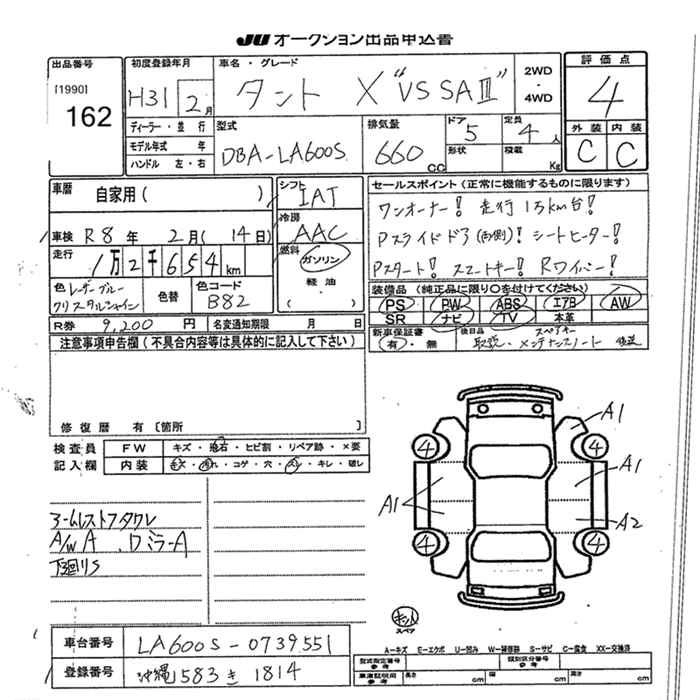 JU オークション出品申込書
出品番号
[1990]
162
初度登録年月
H31 2月
ディーラー・並行
モデル年式 年
ハンドル 左・右
車名・グレード
タント X "VS SAⅢ"
2WD・4WD
型式
DBA-LA600S
排気量
660 CC
ドア 5
形状
定員 4人
積載 Kg
評価点
4
外装 内装
C C
車歴 自家用( )
車検 R8年 2月(14日)
走行 1万2千654km
色 レーザーブルークリスタルシャイン
色替
色コード
B82
シフト
IAT
冷房
AAC
燃料
ガソリン
軽油
( )
R券 9,200円 名変通知期限 月 日
セールスポイント(正常に機能するものに限ります)
ワンオーナー! 走行1万km台!
Pスライドドア(両側)! シートヒーター!
Pスタート! スマートキー! Rワイパー!
装備品(純正品に限り○を付けてください)
PS PW ABS エアB AW
SR ナビ TV 本革
新車保証書
有・無
後日品 スペアキー
取説・メンテナンスノート 後送
注意事項申告欄(不具合内容等は具体的に記入して下さい)
修復歴 有[箇所
検査員記入欄
FW キズ・飛石・ヒビ割・リペア跡・×要
内装 キズ・汚れ・コゲ・穴・スレ・キレ・破レ
アームレストフタワレ
A/W A、ロミラーA
下廻りS
A1
A1
A1
A2
4
4
4
4
キット
スペア
A=キズ E=エクボ U=凹み W=補修跡 S=サビ C=腐食 XX=交換済
車台番号 LA600S-0739551
登録番号 沖縄 583 き 1814
型式指定番号 参考
類別区分番号 参考
車庫証明用 参考 長さ cm 幅 cm 高さ cm